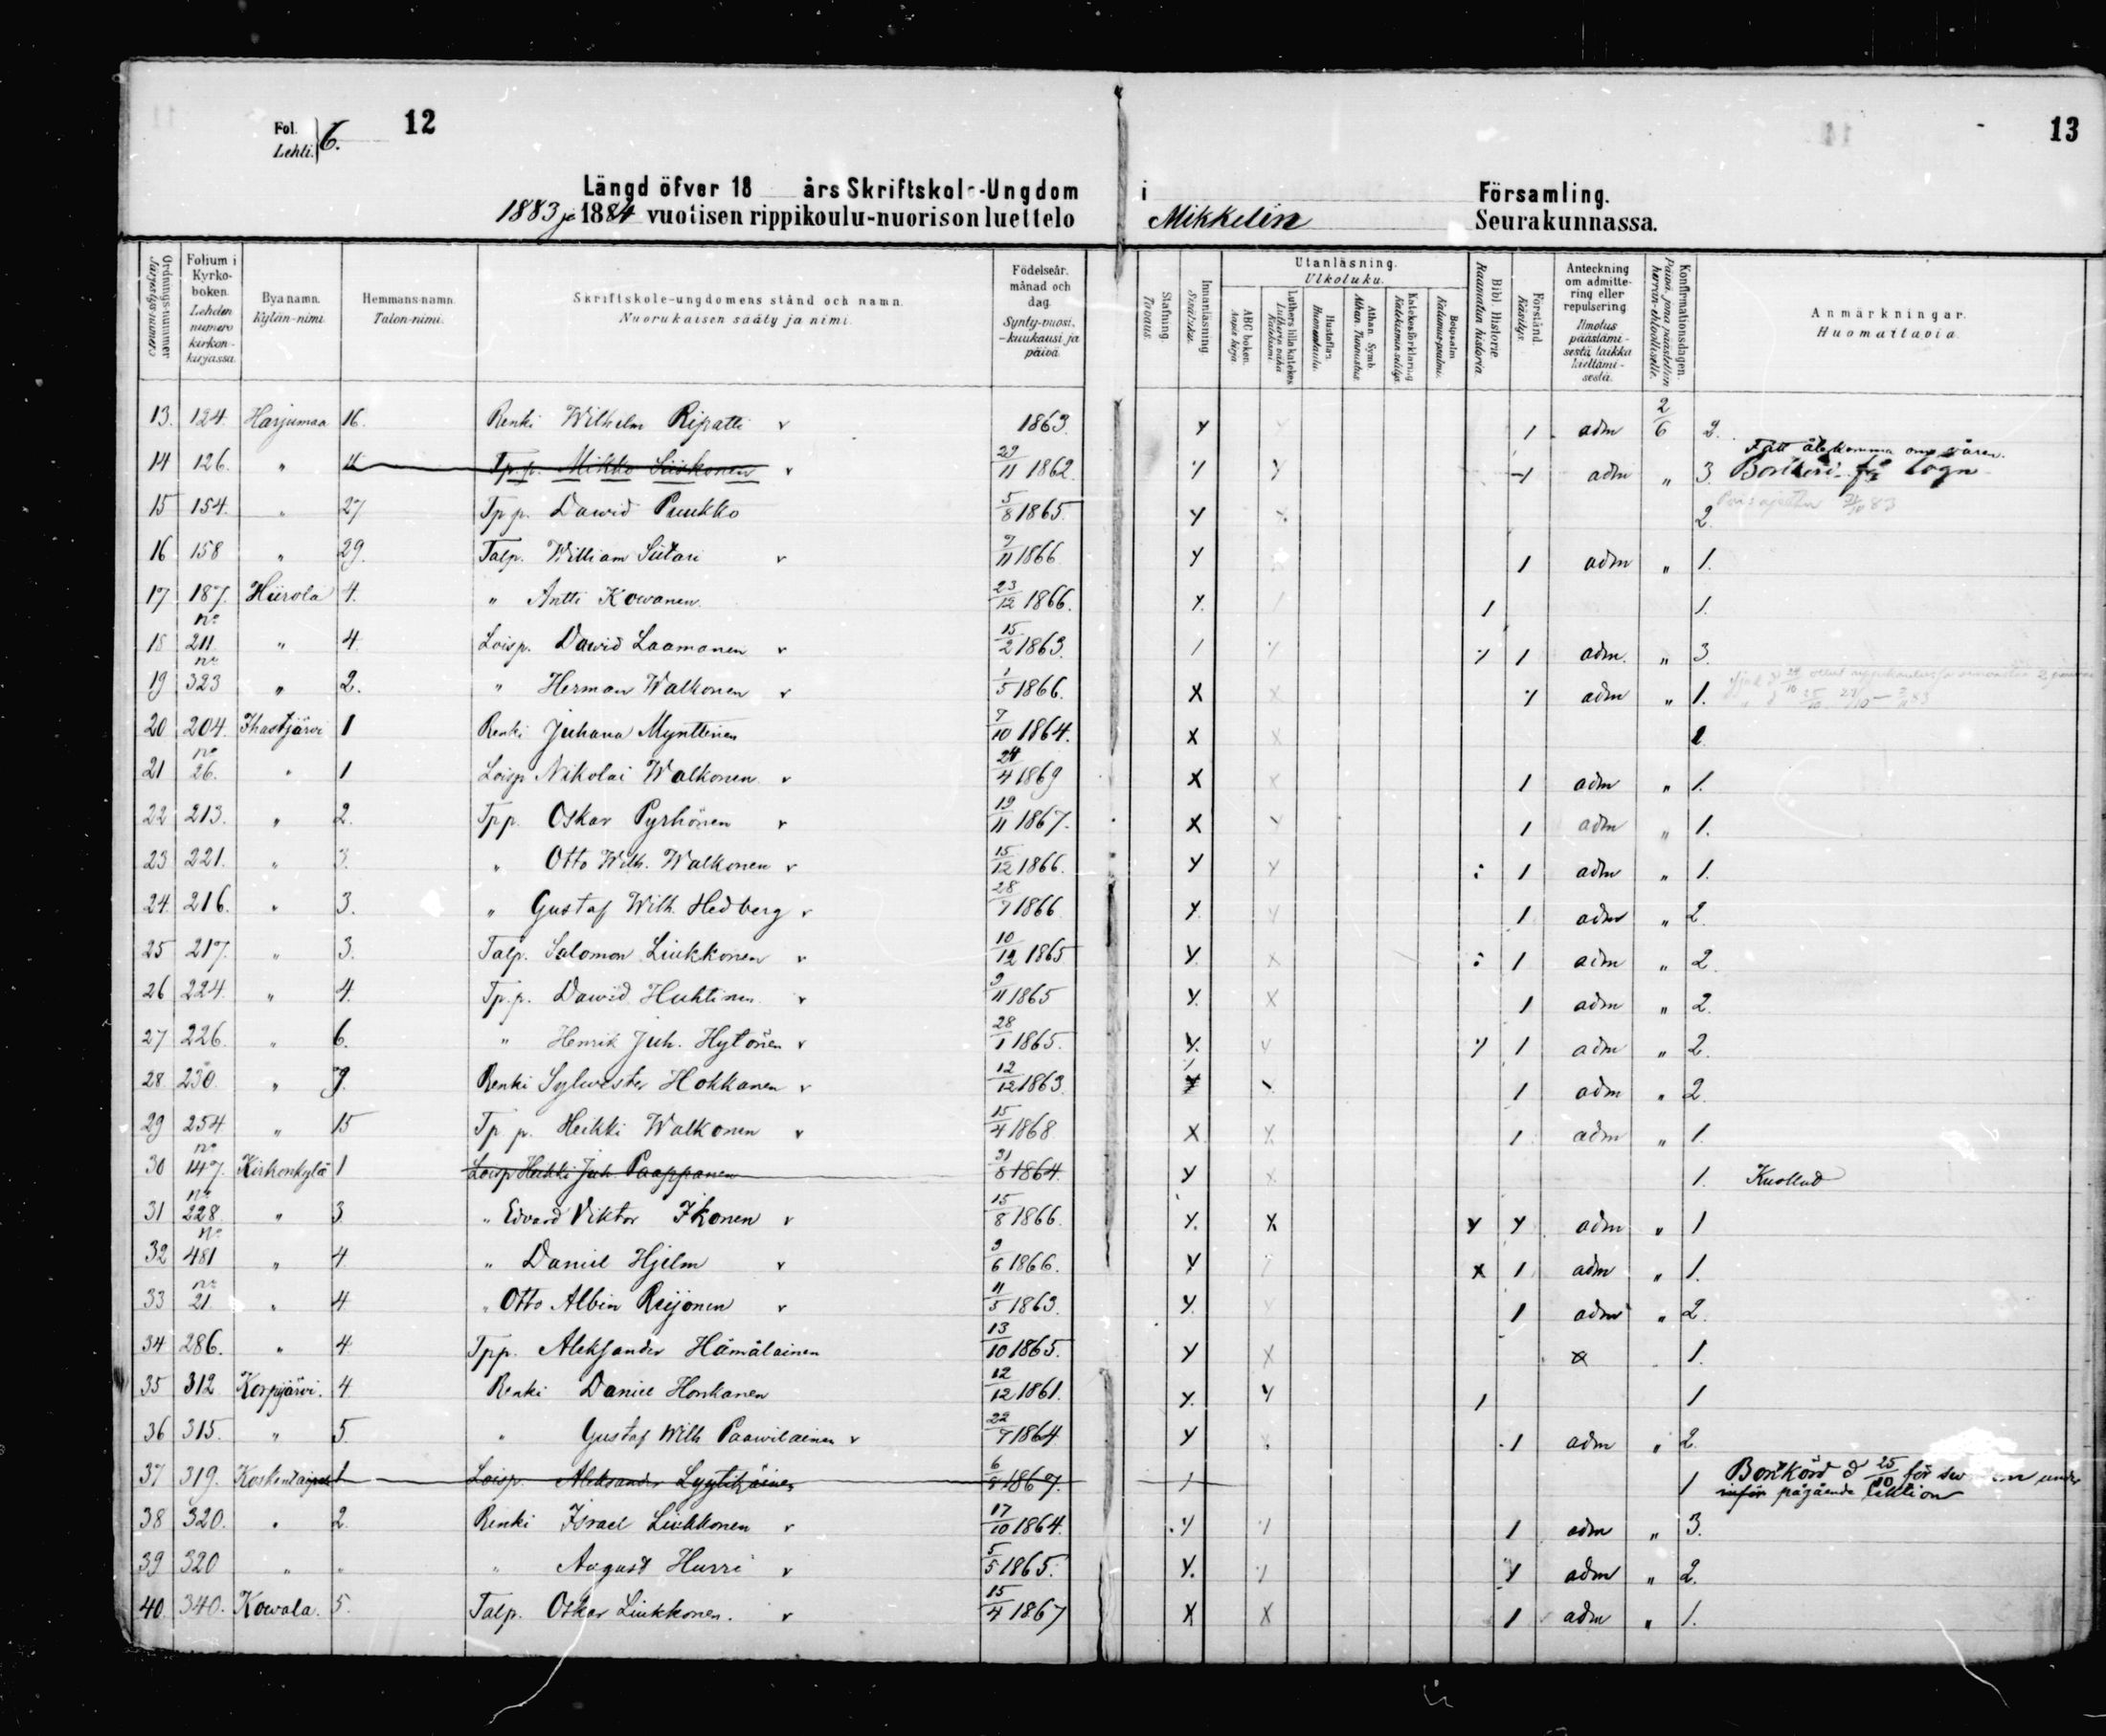 Fol. Lehti. 6. 12
13
Längd öfver 18 års Skriftskole-Ungdom i Församling.
1883 ja 1884 vuotisen rippikoulu-nuorison luettelo Mikkelin Seurakunnassa.
Ordningsnummer Järjestysnumero
Folium i Kyrko-boken. Lehden numero kirkon-kirjassa.
Bya namn. Kylän-nimi.
Hemmans namn. Talon-nimi.
Skriftskole-ungdomens stånd och namn. Nuorukaisen sääty ja nimi.
Födelseår. månad och dag. Synty-vuosi, -kuukausi ja päivä.
Stafning. Tavaus.
Innanläsning. Sisäluku.
Utanläsning. Ulkoluku.
ABC boken. Aapis kirja
Luthers lilla katekes Lutherin vähä Katekismi
Hustaflan. Huoneentaulu.
Athan. Symb. Athan. Tunnustus.
Katekesförklaring Katekismin selitys
Botpsalm Katumus-psalmi.
Bibl. Historie. Raamatun historia.
Förstånd. Käsitys.
Anteckning om admitte-ring eller repulsering Ilmoitus päästämi-sestä taikka kieltämi-sestä.
Konfirmationsdagen. Päivä, jona päästettiin herran-ehtoolliselle.
Anmärkningar. Huomattavia.
13. 124. Harjumaa 16. Renki Wilhelm Ripatti v 1863. y 1 adm 2/6 2.
14 126. " 11 Tp.p. Mikko Siiskonen v 29/11 1862. adm " 3. Bortkörd för lögn
Fått återkomma om våren.
15 154. " 27 Tp.p. Dawid Puukko 5/8 1865. y 2.
16 158 " 29. Talp. William Siitari v 7/11 1866 y 1 adm " 1.
17 187. Hiirola 4. " Antti Kowanen. 23/12 1866. y. 1 1.
18 no 211 " 4. Loisp. Dawid Laamanen v 15/2 1863. 1 adm. " 3.
19 no 323 " 2. " Herman Walkonen v 1/5 1866. x adm " 1.
20 204. Ihastjärvi 1 Renki Juhana Mynttinen 7/10 1864. x
21 no 26. " 1 Loisp Nikolai Walkonen v 24/4 1869 x 1 adm " 1.
22 213. " 2. Tpp. Oskar Pyrhönen v 19/11 1867. x 1 adm " 1.
23 221. " 3. " Otto Wilh. Walkonen v 15/12 1866. y : 1 adm " 1.
24. 216. " 3. " Gustaf Wilh. Hedberg v 28/7 1866 y. 1 adm " 2.
25 217. " 3. Talp. Salomon Liukkonen v 10/12 1865 y. : 1 adm " 2.
26 224. " 4. Tp.p. Dawid Huhtinen v 9/11 1865 y. x 1 adm " 2.
27 226. " 6. " Henrik Juh. Hytönen v 28/1 1865. y. 1 adm " 2.
28 230. " 9. Renki Sylwester Hokkanen v 12/12 1863 1 adm " 2.
29 254 " 15 Tp p. Heikki Walkonen v 15/4 1868. x x 1 adm " 1.
30 no 147. Kirkonkylä 1 Loisp Heikki Juh. Paappanen 31/8 1864. y x 1. Kuollut
31 no 228 " 3 " Edvard Viktor Ikonen v 15/8 1866. y. x y y adm " 1
32 no 481 " 4 " Daniel Hjelm v 3/6 1866. y x 1 adm " 1.
33 no 21. " 4 " Otto Albin Reijonen v 11/5 1863. y. 1 adm " 2.
34 286. " 4. Tpp. Aleksander Hämäläinen 13/10 1865. y x 1.
35 312 Korpijärvi. 4 Renki Daniel Honkanen 12/12 1861. y. y 1 1
36 315. " 5. " Gustaf Wilh Paawilainen v 22/7 1864. y 1 adm " 2.
37 319. 1 Loisp. Aleksander Lyytikäinen 1867. 1 1 Bortkörd d 25/10 för under
pågående lektion
38 320. " 2. Renki Israel Liukkonen v 17/10 1864. 1 adm " 3.
39 320 " " " August Hurri v 5/5 1865. y. adm " 2.
40 340. Kowala. 5. Talp. Oskar Liukkonen. v 15/4 1867 x x 1 adm " 1.